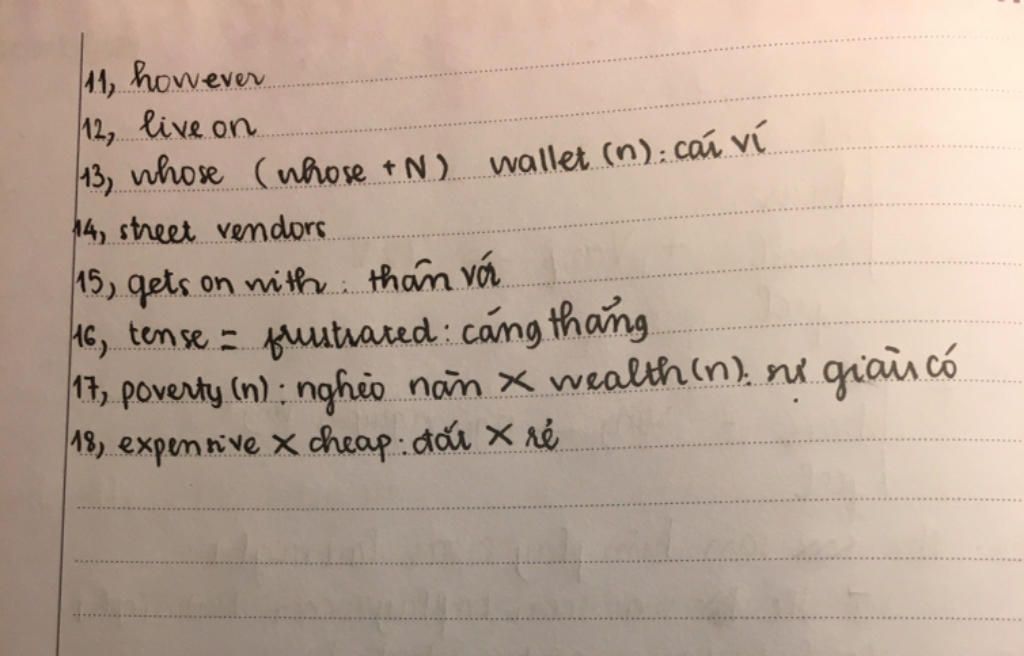 11, however
12, live on
13, whose (whose + N) wallet (n): cái ví
14, street vendors
15, gets on with: thân với
16, tense = frustrated: căng thẳng
17, poverty (n): nghèo nàn × wealth (n): sự giàu có
18, expensive × cheap: đắt × rẻ